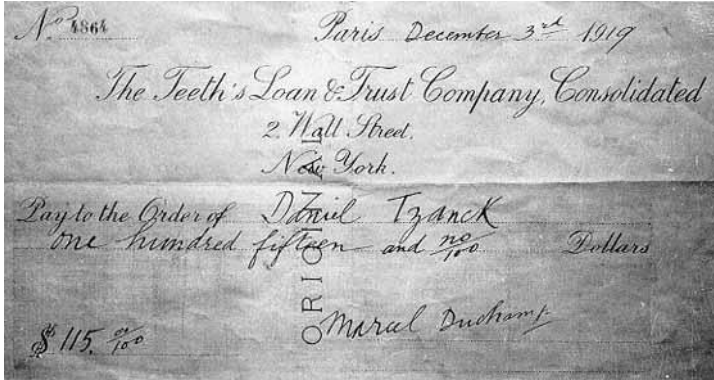 No 4864
Paris December 3rd 1919
The Teeth's Loan & Trust Company, Consolidated
2 Wall Street.
New York.
Pay to the Order of Daniel Tzanck
one hundred fifteen and no/100 Dollars
$ 115. no/100
Marcel Duchamp
ORIGINAL